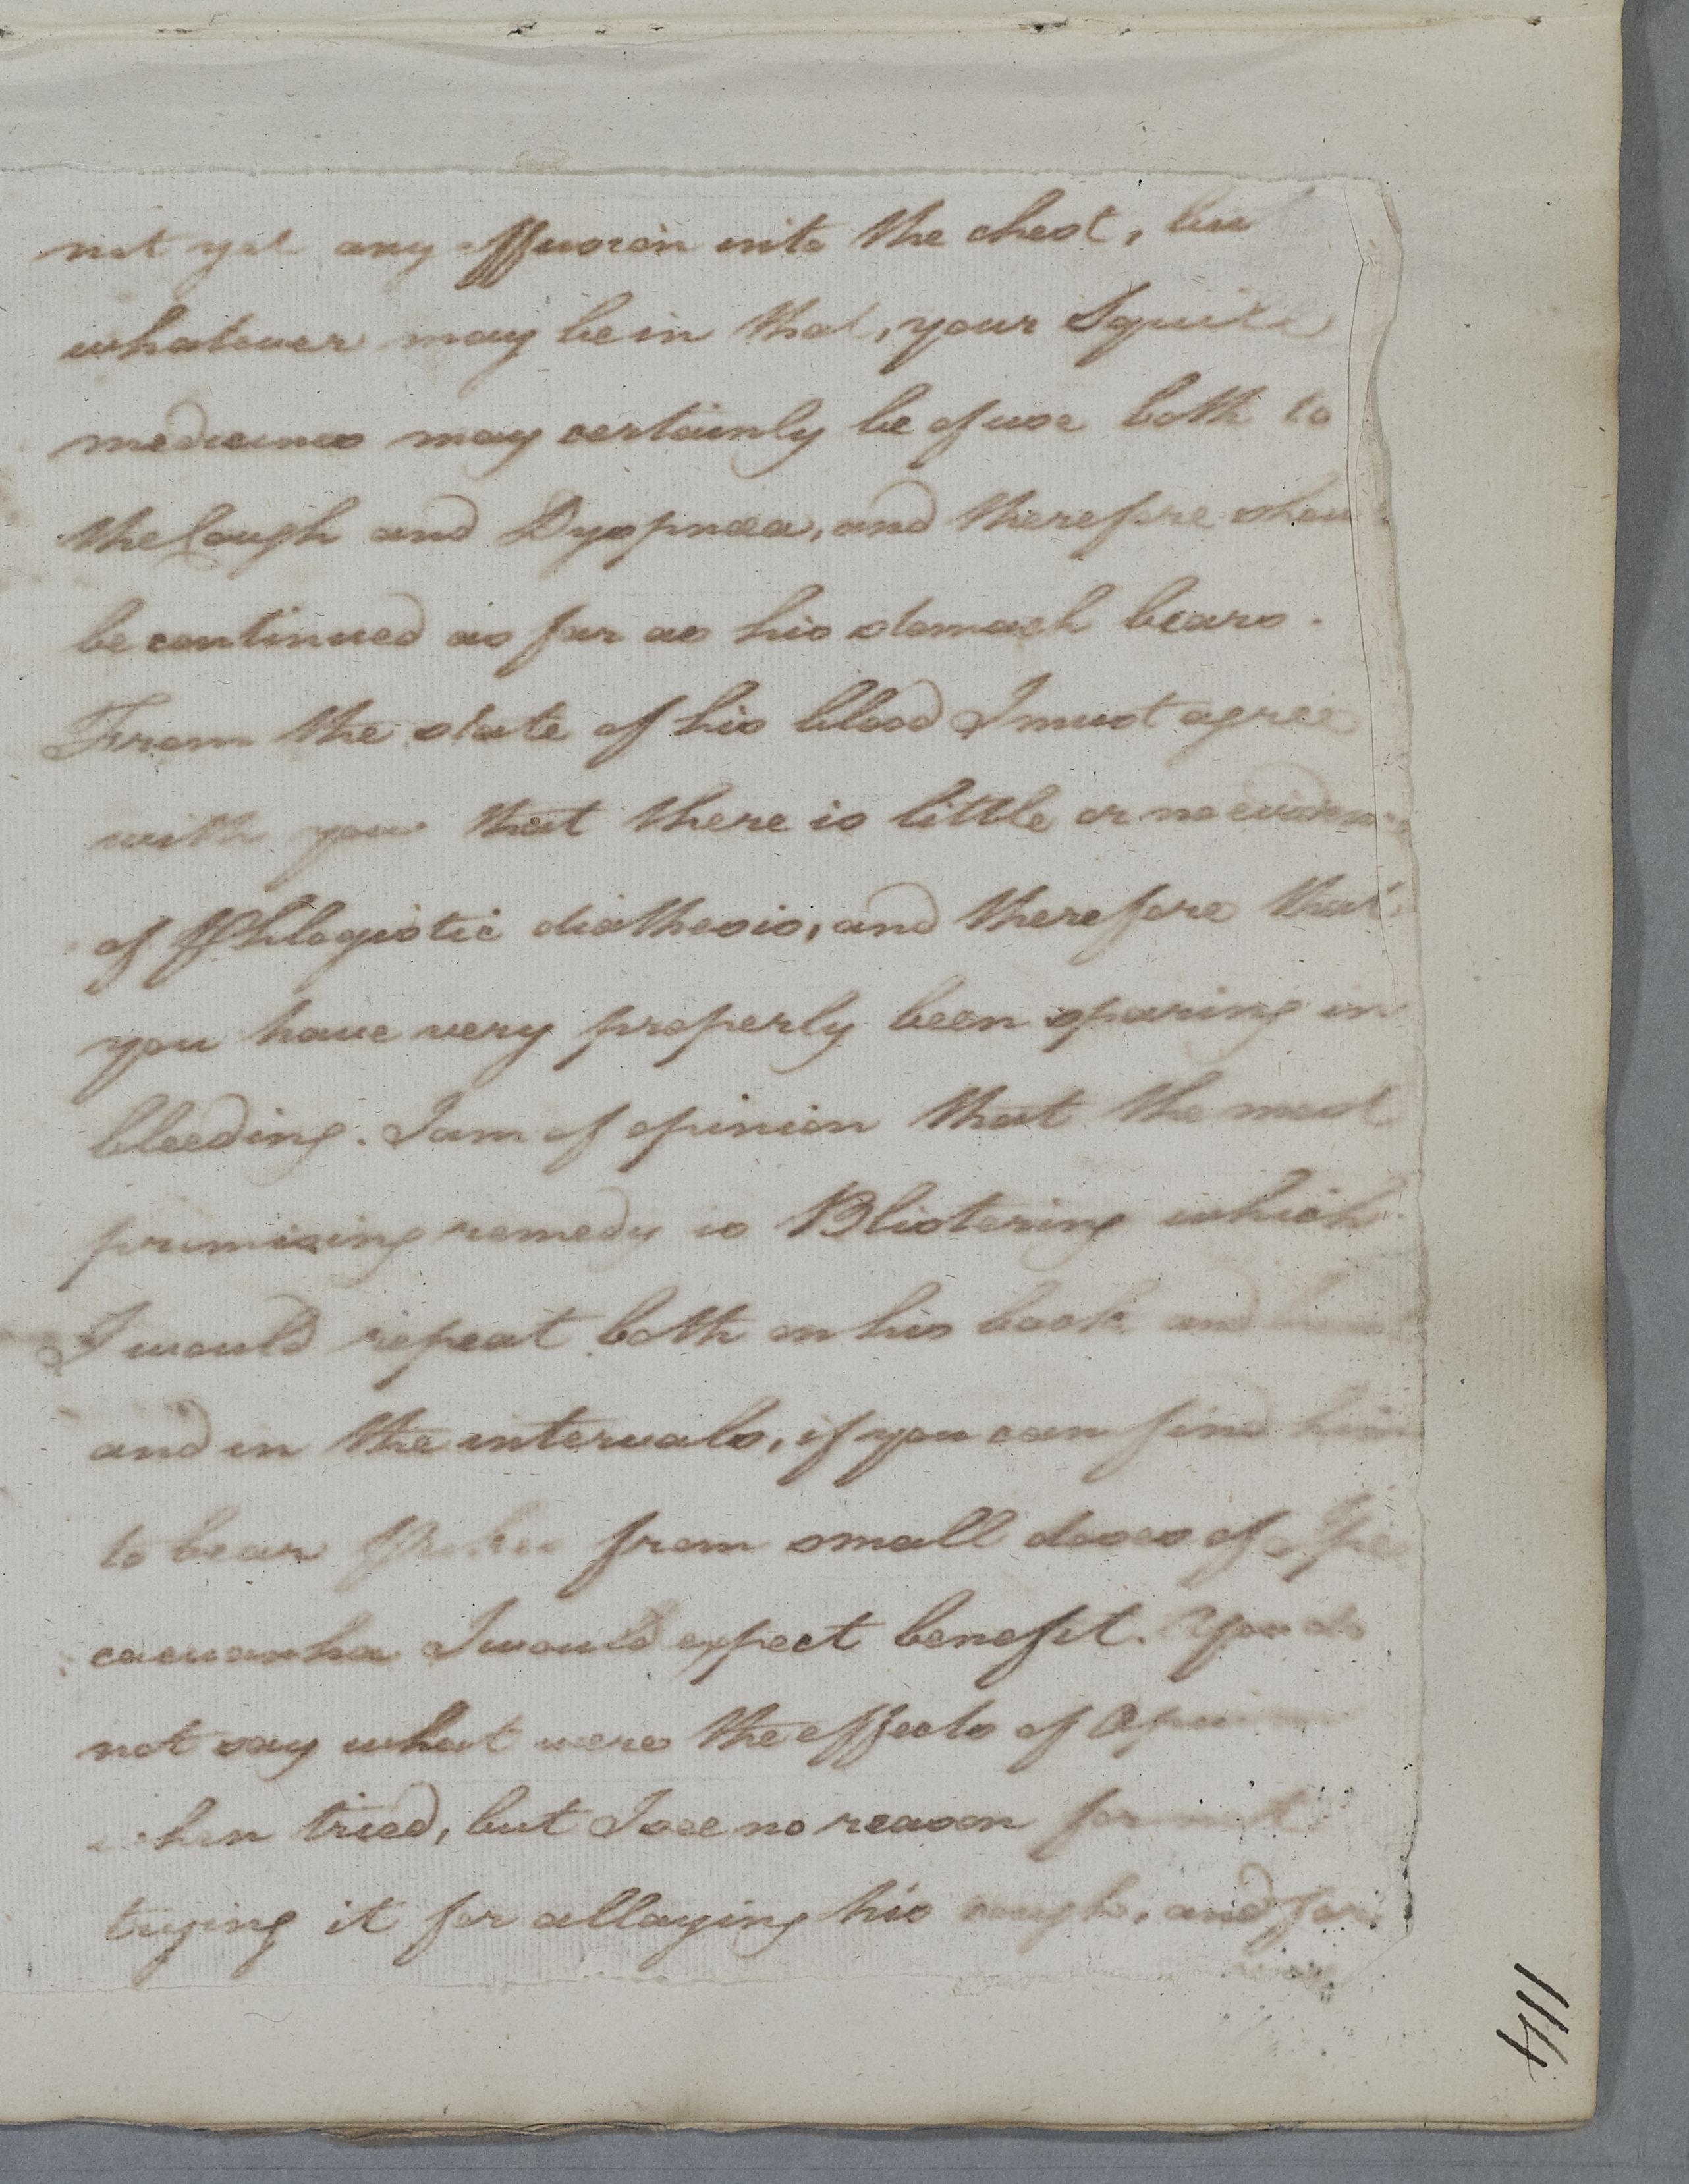 not yet any effusion into the chest, but
whatever may be in that, your Squill
medicines may certainly be of use both to
the Cough and Dyspnœa, and therefore shou
be continued as far as his stomach bears.
From the state of his blood I must agree
with you that there is little or no evidence
of Phlogistic diathesis, and therefore that
you have very properly been sparing in
bleeding. I am of opinion that the most
promising remedy is Blistering which
I would repeat both on his back and
and in the intervals, if you can find him
to bear from small doses of Ipe
cacuanha I would expect benefit. You do
not say what were the effects of Opium
when tried, but I see no reason for not
trying it for allaying his cough, and for
114